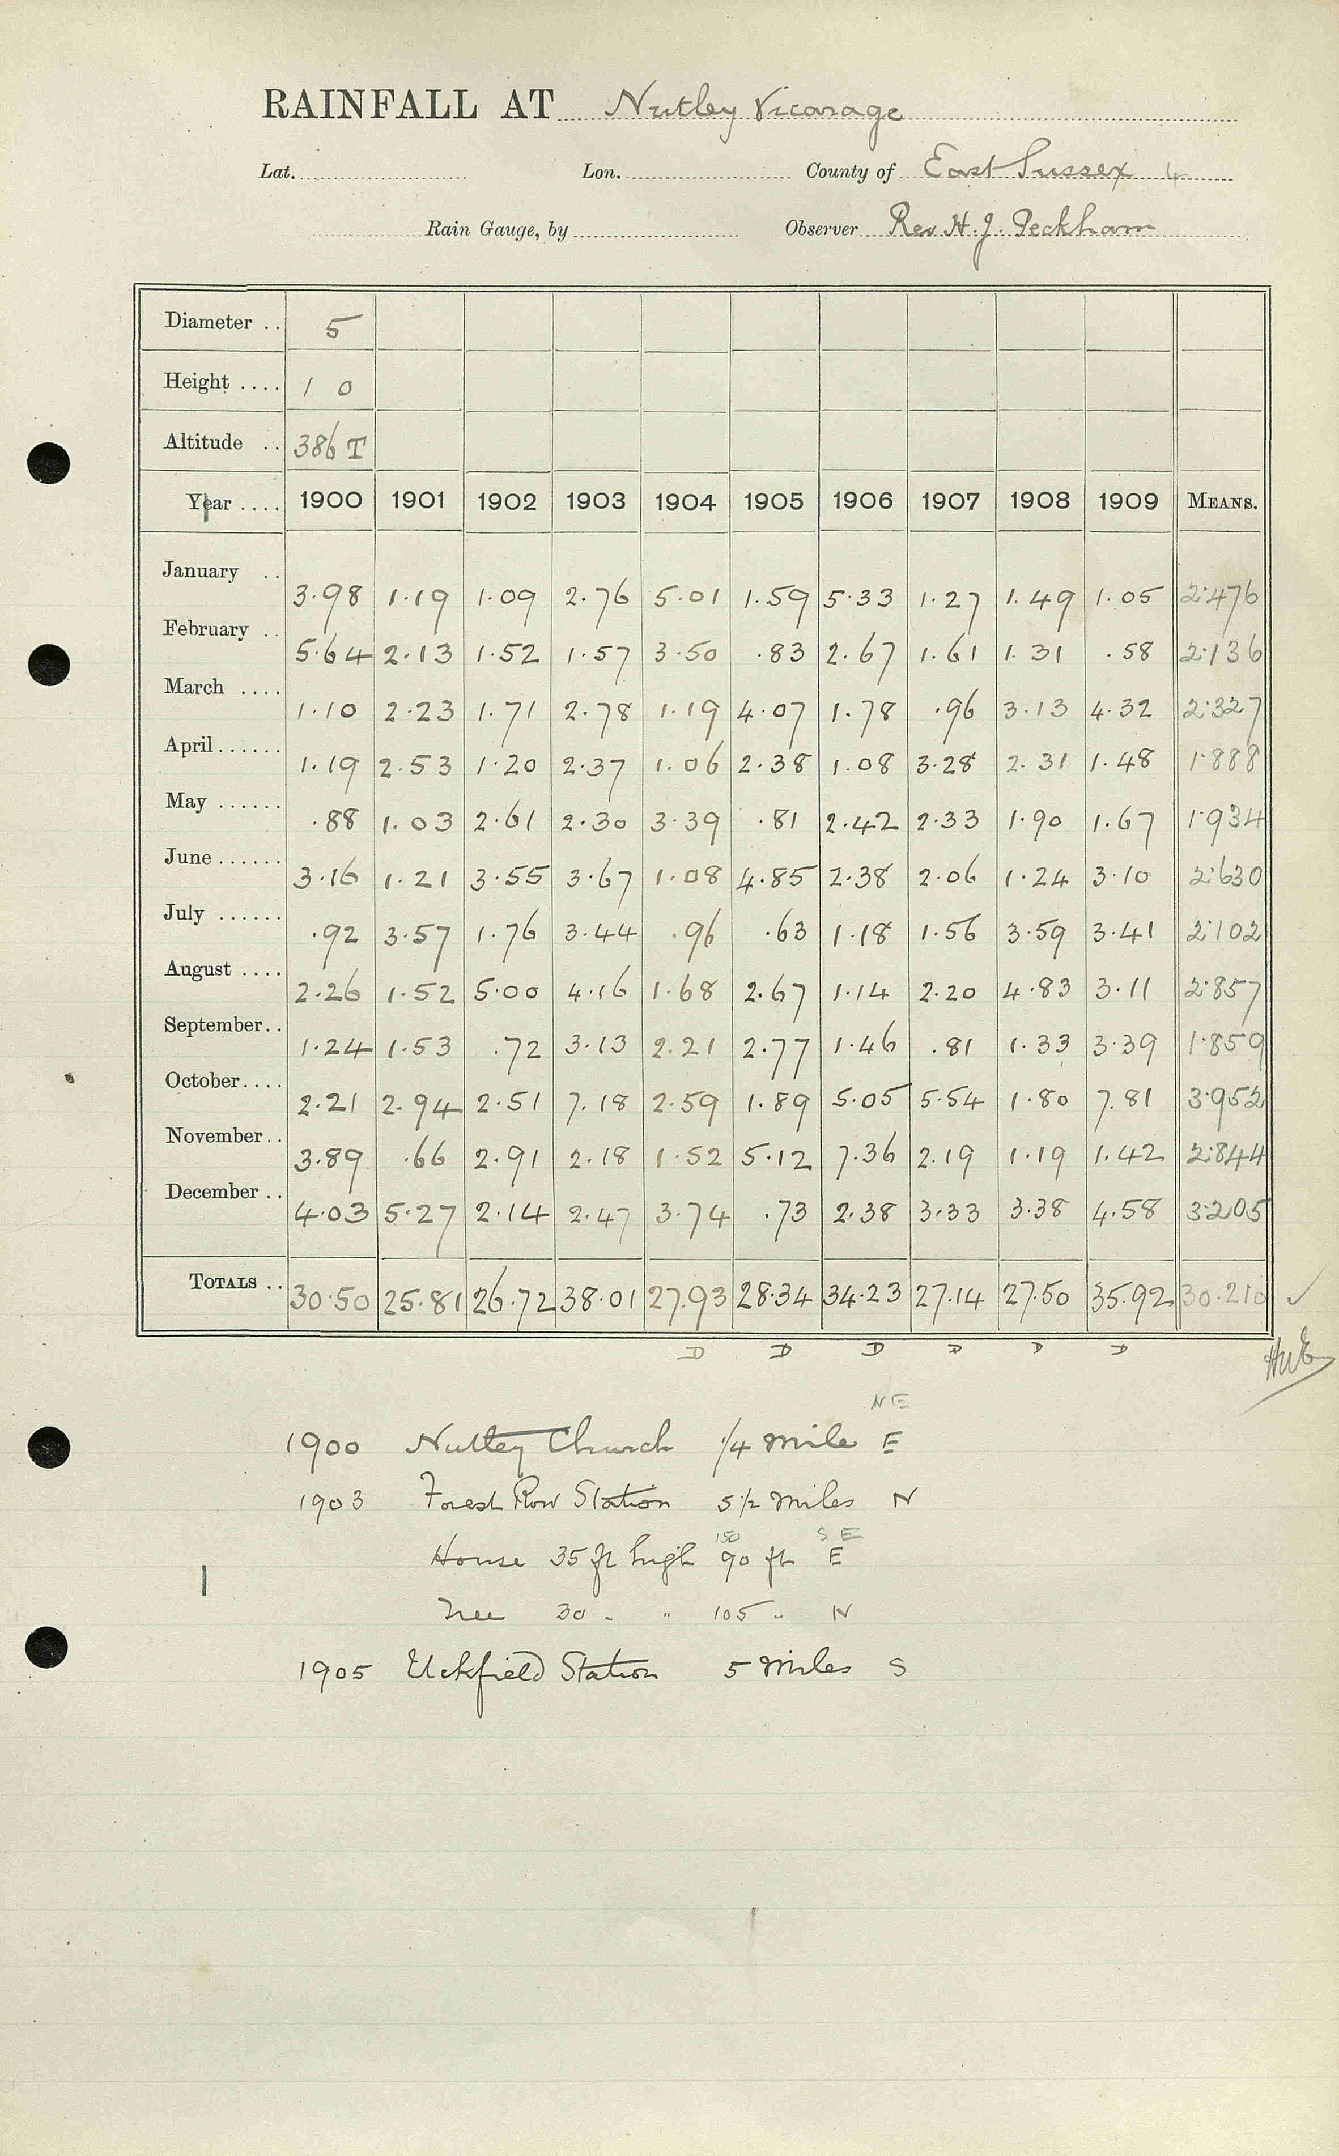 RAINFALL AT Nutley Vicarage
Lat. Lon. County of East Sussex 4
Rain Gauge, by Observer Rev H. J. Peckham
Diameter .. 5
Height .... 1 0
Altitude .. 386 T
Year .... 1900 1901 1902 1903 1904 1905 1906 1907 1908 1909 MEANS.
January .. 3.98 1.19 1.09 2.76 5.01 1.59 5.33 1.27 1.49 1.05 2.476
February .. 5.64 2.13 1.52 1.57 3.50 .83 2.67 1.61 1.31 .58 2.136
March .... 1.10 2.23 1.71 2.78 1.19 4.07 1.78 .96 3.13 4.32 2.327
April...... 1.19 2.53 1.20 2.37 1.06 2.38 1.08 3.28 2.31 1.48 1.888
May ...... .88 1.03 2.61 2.30 3.39 .81 2.42 2.33 1.90 1.67 1.934
June ...... 3.16 1.21 3.55 3.67 1.08 4.85 2.38 2.06 1.24 3.10 2.630
July ...... .92 3.57 1.76 3.44 .96 .63 1.18 1.56 3.59 3.41 2.102
August .... 2.26 1.52 5.00 4.16 1.68 2.67 1.14 2.20 4.83 3.11 2.857
September.. 1.24 1.53 .72 3.13 2.21 2.77 1.46 .81 1.33 3.39 1.859
October.... 2.21 2.94 2.51 7.18 2.59 1.89 5.05 5.54 1.80 7.81 3.952
November.. 3.89 .66 2.91 2.18 1.52 5.12 7.36 2.19 1.19 1.42 2.844
December .. 4.03 5.27 2.14 2.47 3.74 .73 2.38 3.33 3.38 4.58 3.205
TOTALS .. 30.50 25.81 26.72 38.01 27.93 28.34 34.23 27.14 27.50 35.92 30.210 ✓
D D D D D D
NE
1900 Nutley Church 1/4 mile E
1903 Forest Row Station 5 1/2 miles N
150 SE
House 35 ft high 90 ft E
Tree 30 " " 105 " N
1905 Uckfield Station 5 miles S